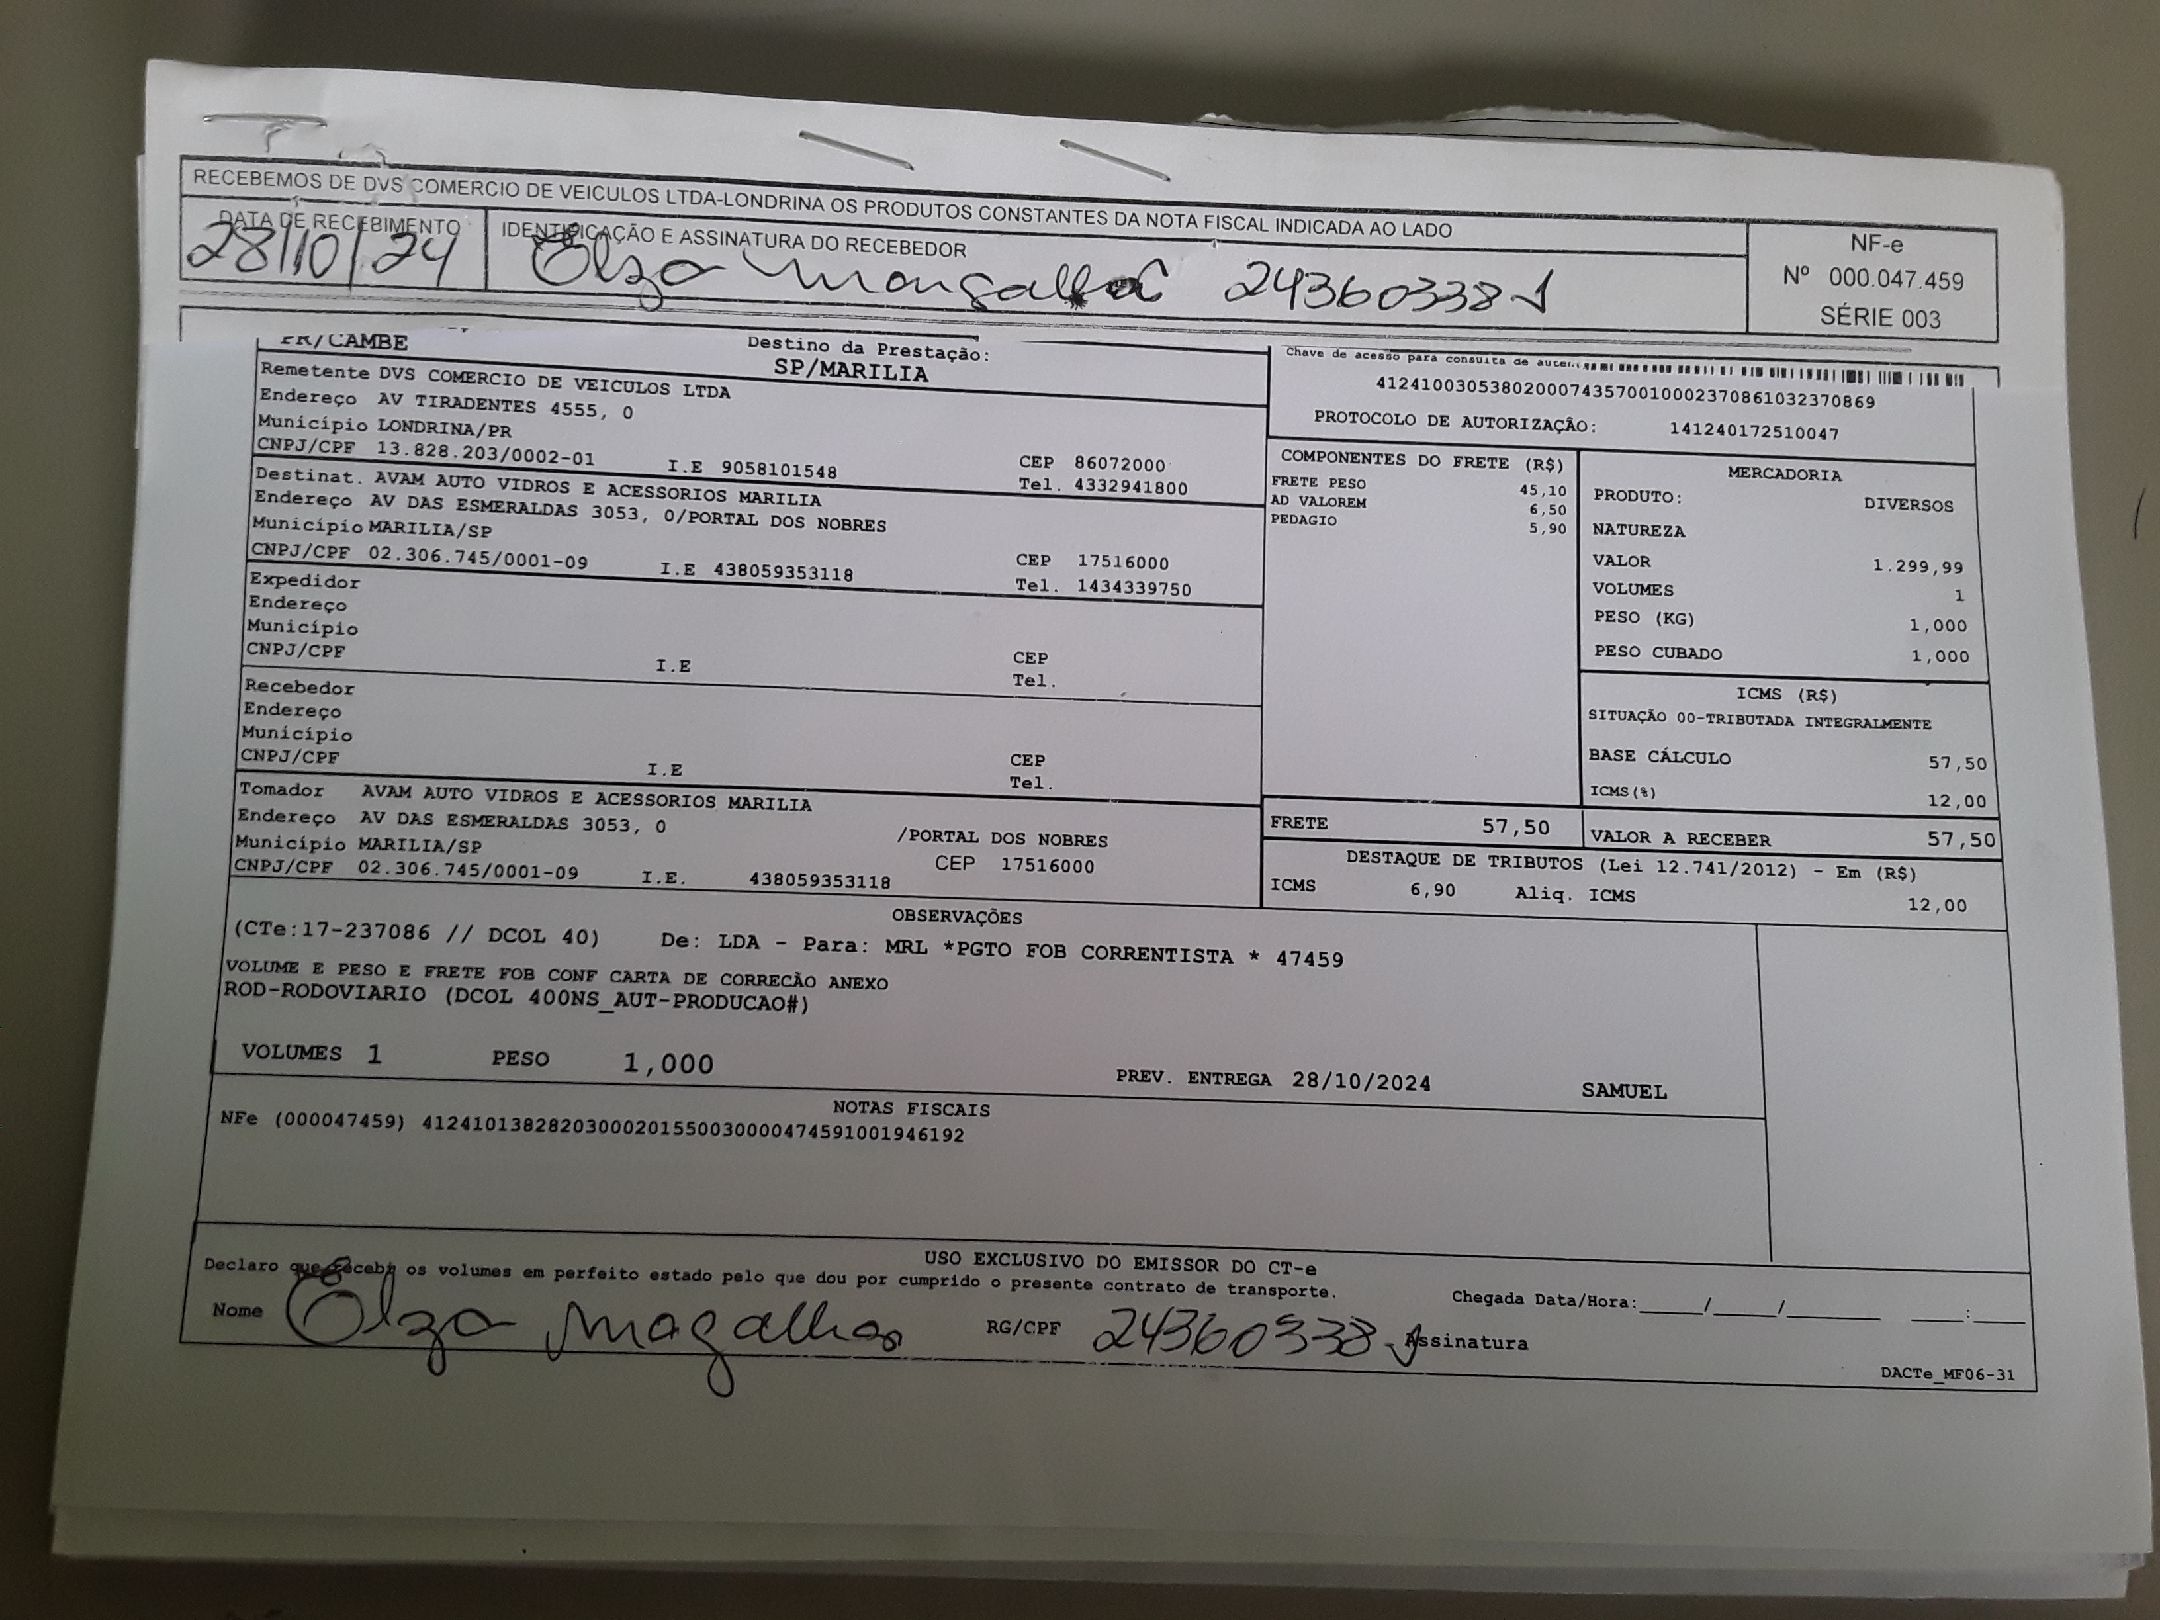 RECEBEMOS DE DVS COMERCIO DE VEICULOS LTDA-LONDRINA OS PRODUTOS CONSTANTES DA NOTA FISCAL INDICADA AO LADO
DATA DE RECEBIMENTO
28/10/24
IDENTIFICAÇÃO E ASSINATURA DO RECEBEDOR
24360338
NF-e
Nº 000.047.459
SÉRIE 003
PR/CAMBE
Destino da Prestação:
SP/MARILIA
Remetente DVS COMERCIO DE VEICULOS LTDA
Endereço AV TIRADENTES 4555, 0
Município LONDRINA/PR
CNPJ/CPF 13.828.203/0002-01 I.E 9058101548 CEP 86072000
Tel. 4332941800
Destinat. AVAM AUTO VIDROS E ACESSORIOS MARILIA
Endereço AV DAS ESMERALDAS 3053, 0/PORTAL DOS NOBRES
Município MARILIA/SP
CNPJ/CPF 02.306.745/0001-09 I.E 438059353118 CEP 17516000
Tel. 1434339750
Expedidor
Endereço
Município
CNPJ/CPF I.E CEP
Tel.
Recebedor
Endereço
Município
CNPJ/CPF I.E CEP
Tel.
Tomador AVAM AUTO VIDROS E ACESSORIOS MARILIA
Endereço AV DAS ESMERALDAS 3053, 0 /PORTAL DOS NOBRES
Município MARILIA/SP CEP 17516000
CNPJ/CPF 02.306.745/0001-09 I.E. 438059353118
Chave de acesso para consulta de
41241003053802000743570010002370861032370869
PROTOCOLO DE AUTORIZAÇÃO: 141240172510047
COMPONENTES DO FRETE (R$)
FRETE PESO 45,10
AD VALOREM 6,50
PEDAGIO 5,90
MERCADORIA
PRODUTO: DIVERSOS
NATUREZA
VALOR 1.299,99
VOLUMES 1
PESO (KG) 1,000
PESO CUBADO 1,000
ICMS (R$)
SITUAÇÃO 00-TRIBUTADA INTEGRALMENTE
BASE CÁLCULO 57,50
ICMS(%) 12,00
FRETE 57,50
VALOR A RECEBER 57,50
DESTAQUE DE TRIBUTOS (Lei 12.741/2012) - Em (R$)
ICMS 6,90 Aliq. ICMS 12,00
OBSERVAÇÕES
(CTe:17-237086 // DCOL 40) De: LDA - Para: MRL *PGTO FOB CORRENTISTA * 47459
VOLUME E PESO E FRETE FOB CONF CARTA DE CORRECÃO ANEXO
ROD-RODOVIARIO (DCOL 400NS_AUT-PRODUCAO#)
VOLUMES 1 PESO 1,000 PREV. ENTREGA 28/10/2024 SAMUEL
NOTAS FISCAIS
NFe (000047459) 41241013828203000201550030000474591001946192
USO EXCLUSIVO DO EMISSOR DO CT-e
Declaro que recebi os volumes em perfeito estado pelo que dou por cumprido o presente contrato de transporte.
Nome Olza Magalhas RG/CPF 24360338 Assinatura
Chegada Data/Hora:_____/_____/________ ____:____
DACTe_MF06-31